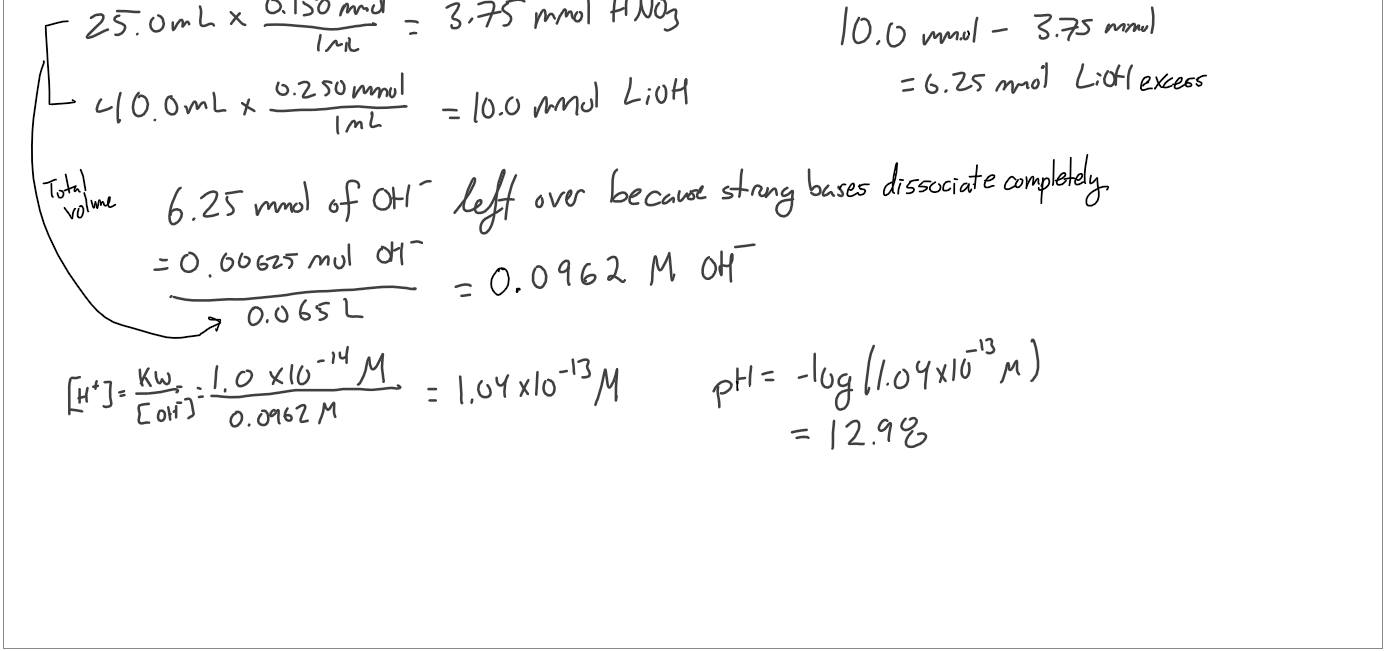 25.0mL × 0.150 mmol / 1mL = 3.75 mmol HNO₃
10.0 mmol - 3.75 mmol
= 6.25 mmol LiOH excess
40.0mL × 0.250 mmol / 1mL = 10.0 mmol LiOH
Total
volume
6.25 mmol of OH⁻ left over because strong bases dissociate completely
= 0.00625 mol OH⁻ / 0.065 L = 0.0962 M OH⁻
[H⁺] = Kw / [OH⁻] = 1.0 ×10⁻¹⁴ M / 0.0962 M = 1.04 ×10⁻¹³ M
pH = -log(1.04×10⁻¹³ M)
= 12.98